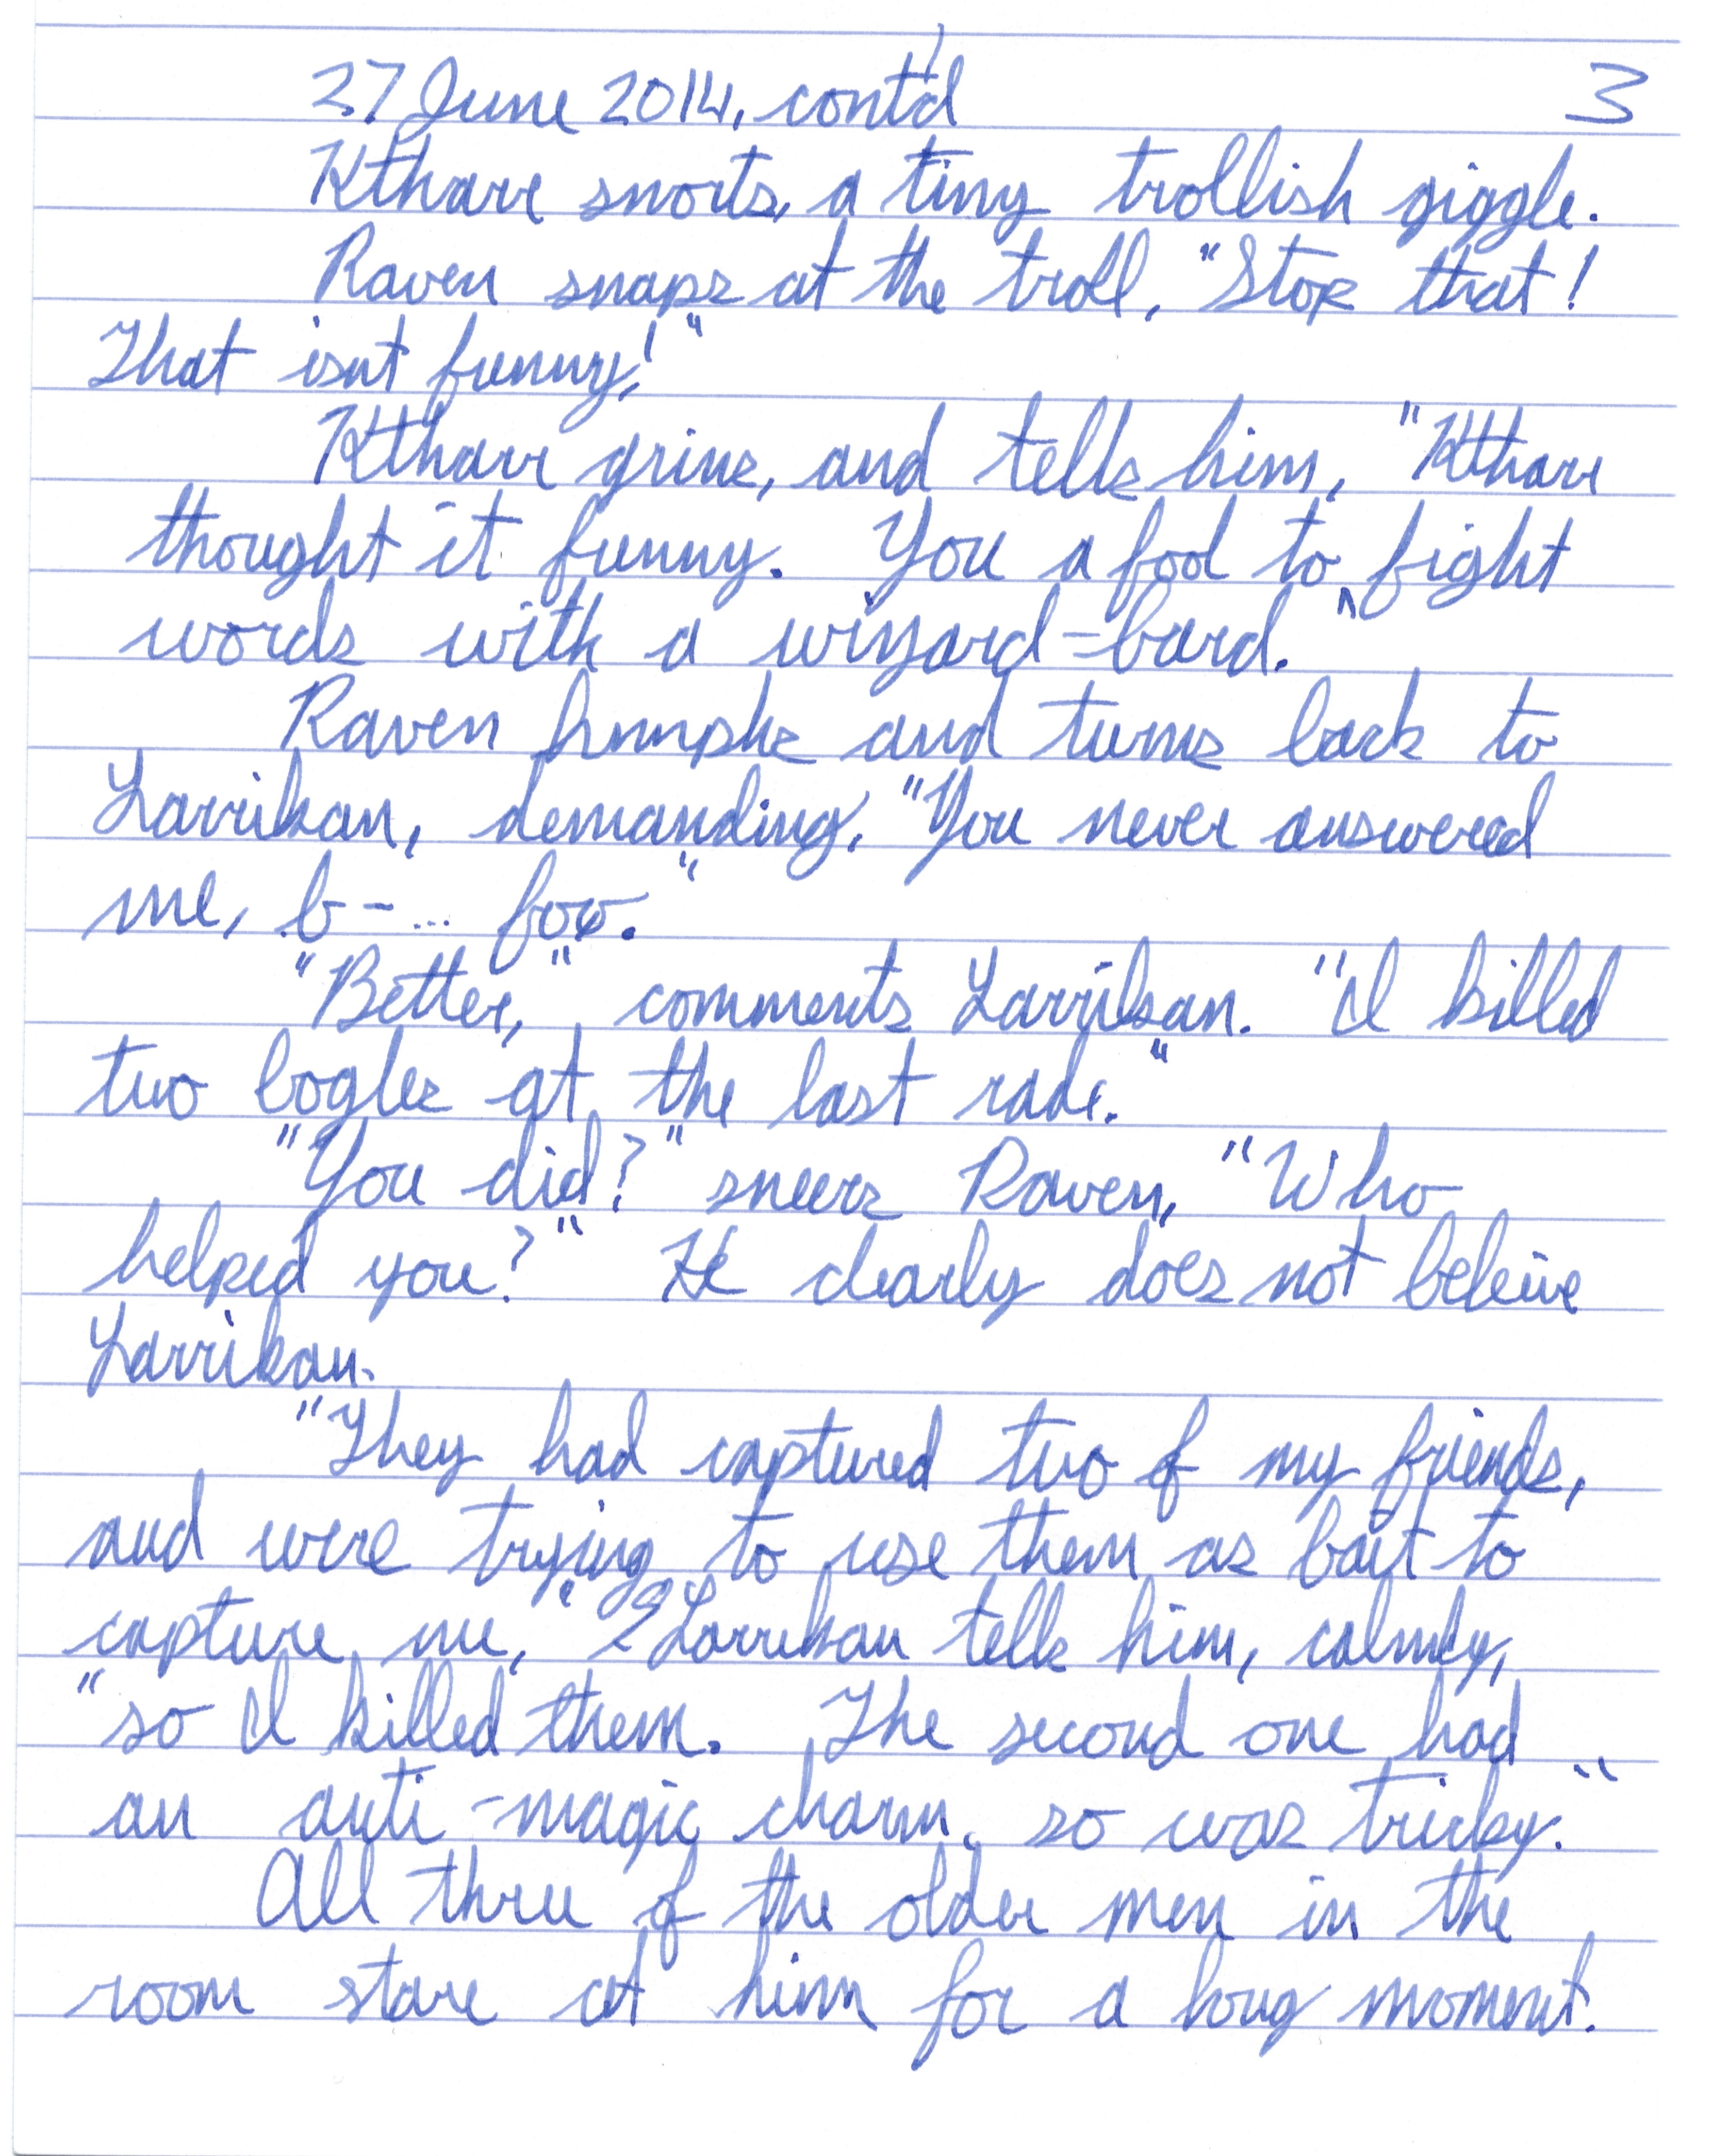 27 June 2014, cont'd 3
Ktharr snorts, a tiny trollish giggle.
Raven snaps at the troll, "Stop that!
That isnt funny!"
Ktharr grins, and tells him, "Ktharr
thought it funny. You a fool to fight
words with a wizard-bard."
Raven humphs and turns back to
Larrikan, demanding, "You never answered
me, b-... foo."
"Better," comments Larrikan. "I killed
two bogles at the last rade."
"You did?" sneers Raven, "Who
helped you?" He clearly does not beleive
Larrikan.
"They had captured two of my friends,
and were trying to use them as bait to
capture me," Larrikan tells him, calmly,
"so I killed them. The second one had
an anti-magic charm, so was tricky."
All three of the older men in the
room stare at him for a long moment.